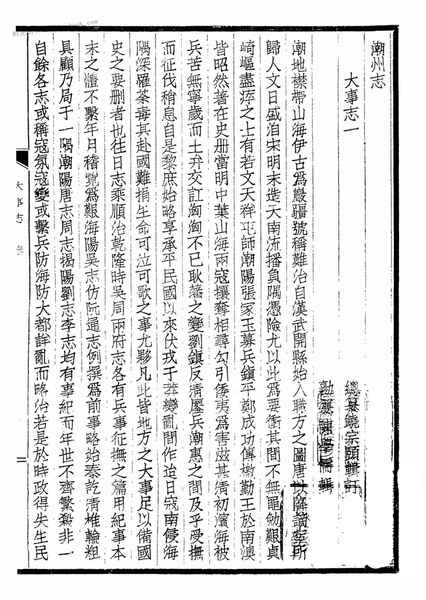 潮州志
大事志一
總纂饒宗頤輯訂
潮地襟帶山海伊古爲嚴疆號稱難治自漢武開縣始入職方之圖唐以降謫宰所
歸人文日盛洎宋明末造天南流播負隅憑險尤以此爲要衝其間不無黽勉艱貞
崎嶇盡瘁之士有若文天祥屯師潮陽張家玉募兵鎮平鄭成功傳檄勤王於南澳
皆昭然著在史册當明中葉山海兩寇攘奪相尋勾引倭夷爲害滋甚清初濱海被
兵苦無寧歲而土弁交訌洶洶不已耿藩之變劉鎮反清屢兵潮惠之間及乎受撫
而征伐稍息自是黎庶始略享承平民國以來伏戎于莽變亂間作迨日寇南侵海
隅深罹荼毒其赴國難捐生命可泣可歌之事尤夥凡此皆地方之大事足以備國
史之要删者也往日志乘順治乾隆時吳周兩府志各有兵事征撫之篇用紀事本
末之體不繫年月稽覽爲艱海陽吳志仿阮通志例撰爲前事略始秦訖清椎輪粗
具顧乃局于一隅潮陽唐志周志揭陽劉志李志均有事紀而年世不齊繁殺非一
自餘各志或稱寇氛寇變或繫兵防海防大都詳亂而略治若是於時政得失生民
大事志
一